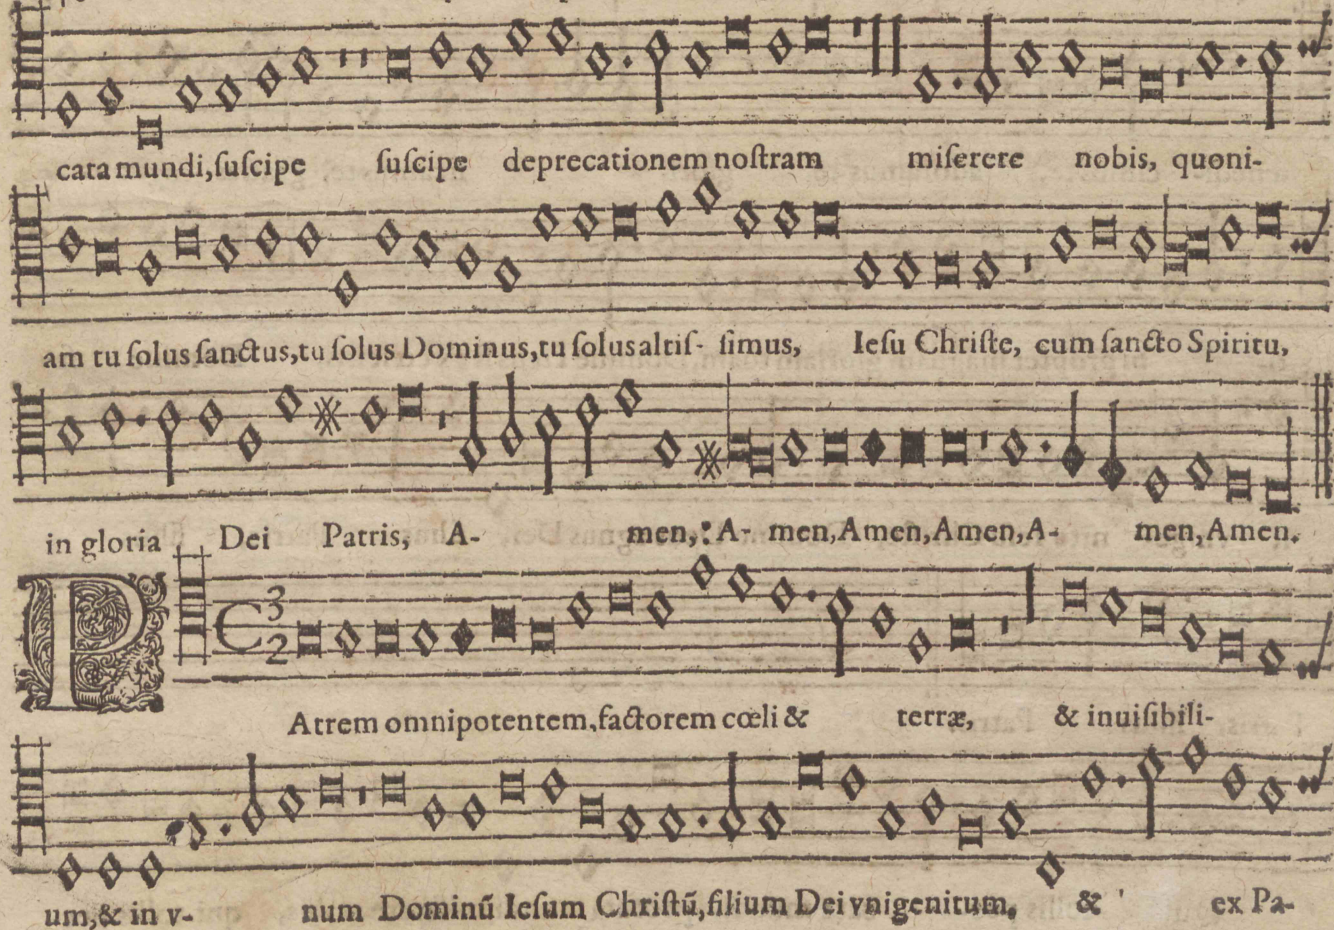 cata mundi, ſuſcipe ſuſcipe deprecationem noſtram miſerere nobis, quoni-
am tu ſolus ſanctus, tu ſolus Dominus, tu ſolus altiſ- ſimus, Ieſu Chriſte, cum ſancto Spiritu,
in gloria Dei Patris, A- men, : A- men, Amen, Amen, A- men, Amen.
3
2
PAtrem omnipotentem, factorem cœli & terræ, & inuiſibili-
um, & in v- num Dominũ Ieſum Chriſtũ, filium Dei vnigenitum. & ex Pa-